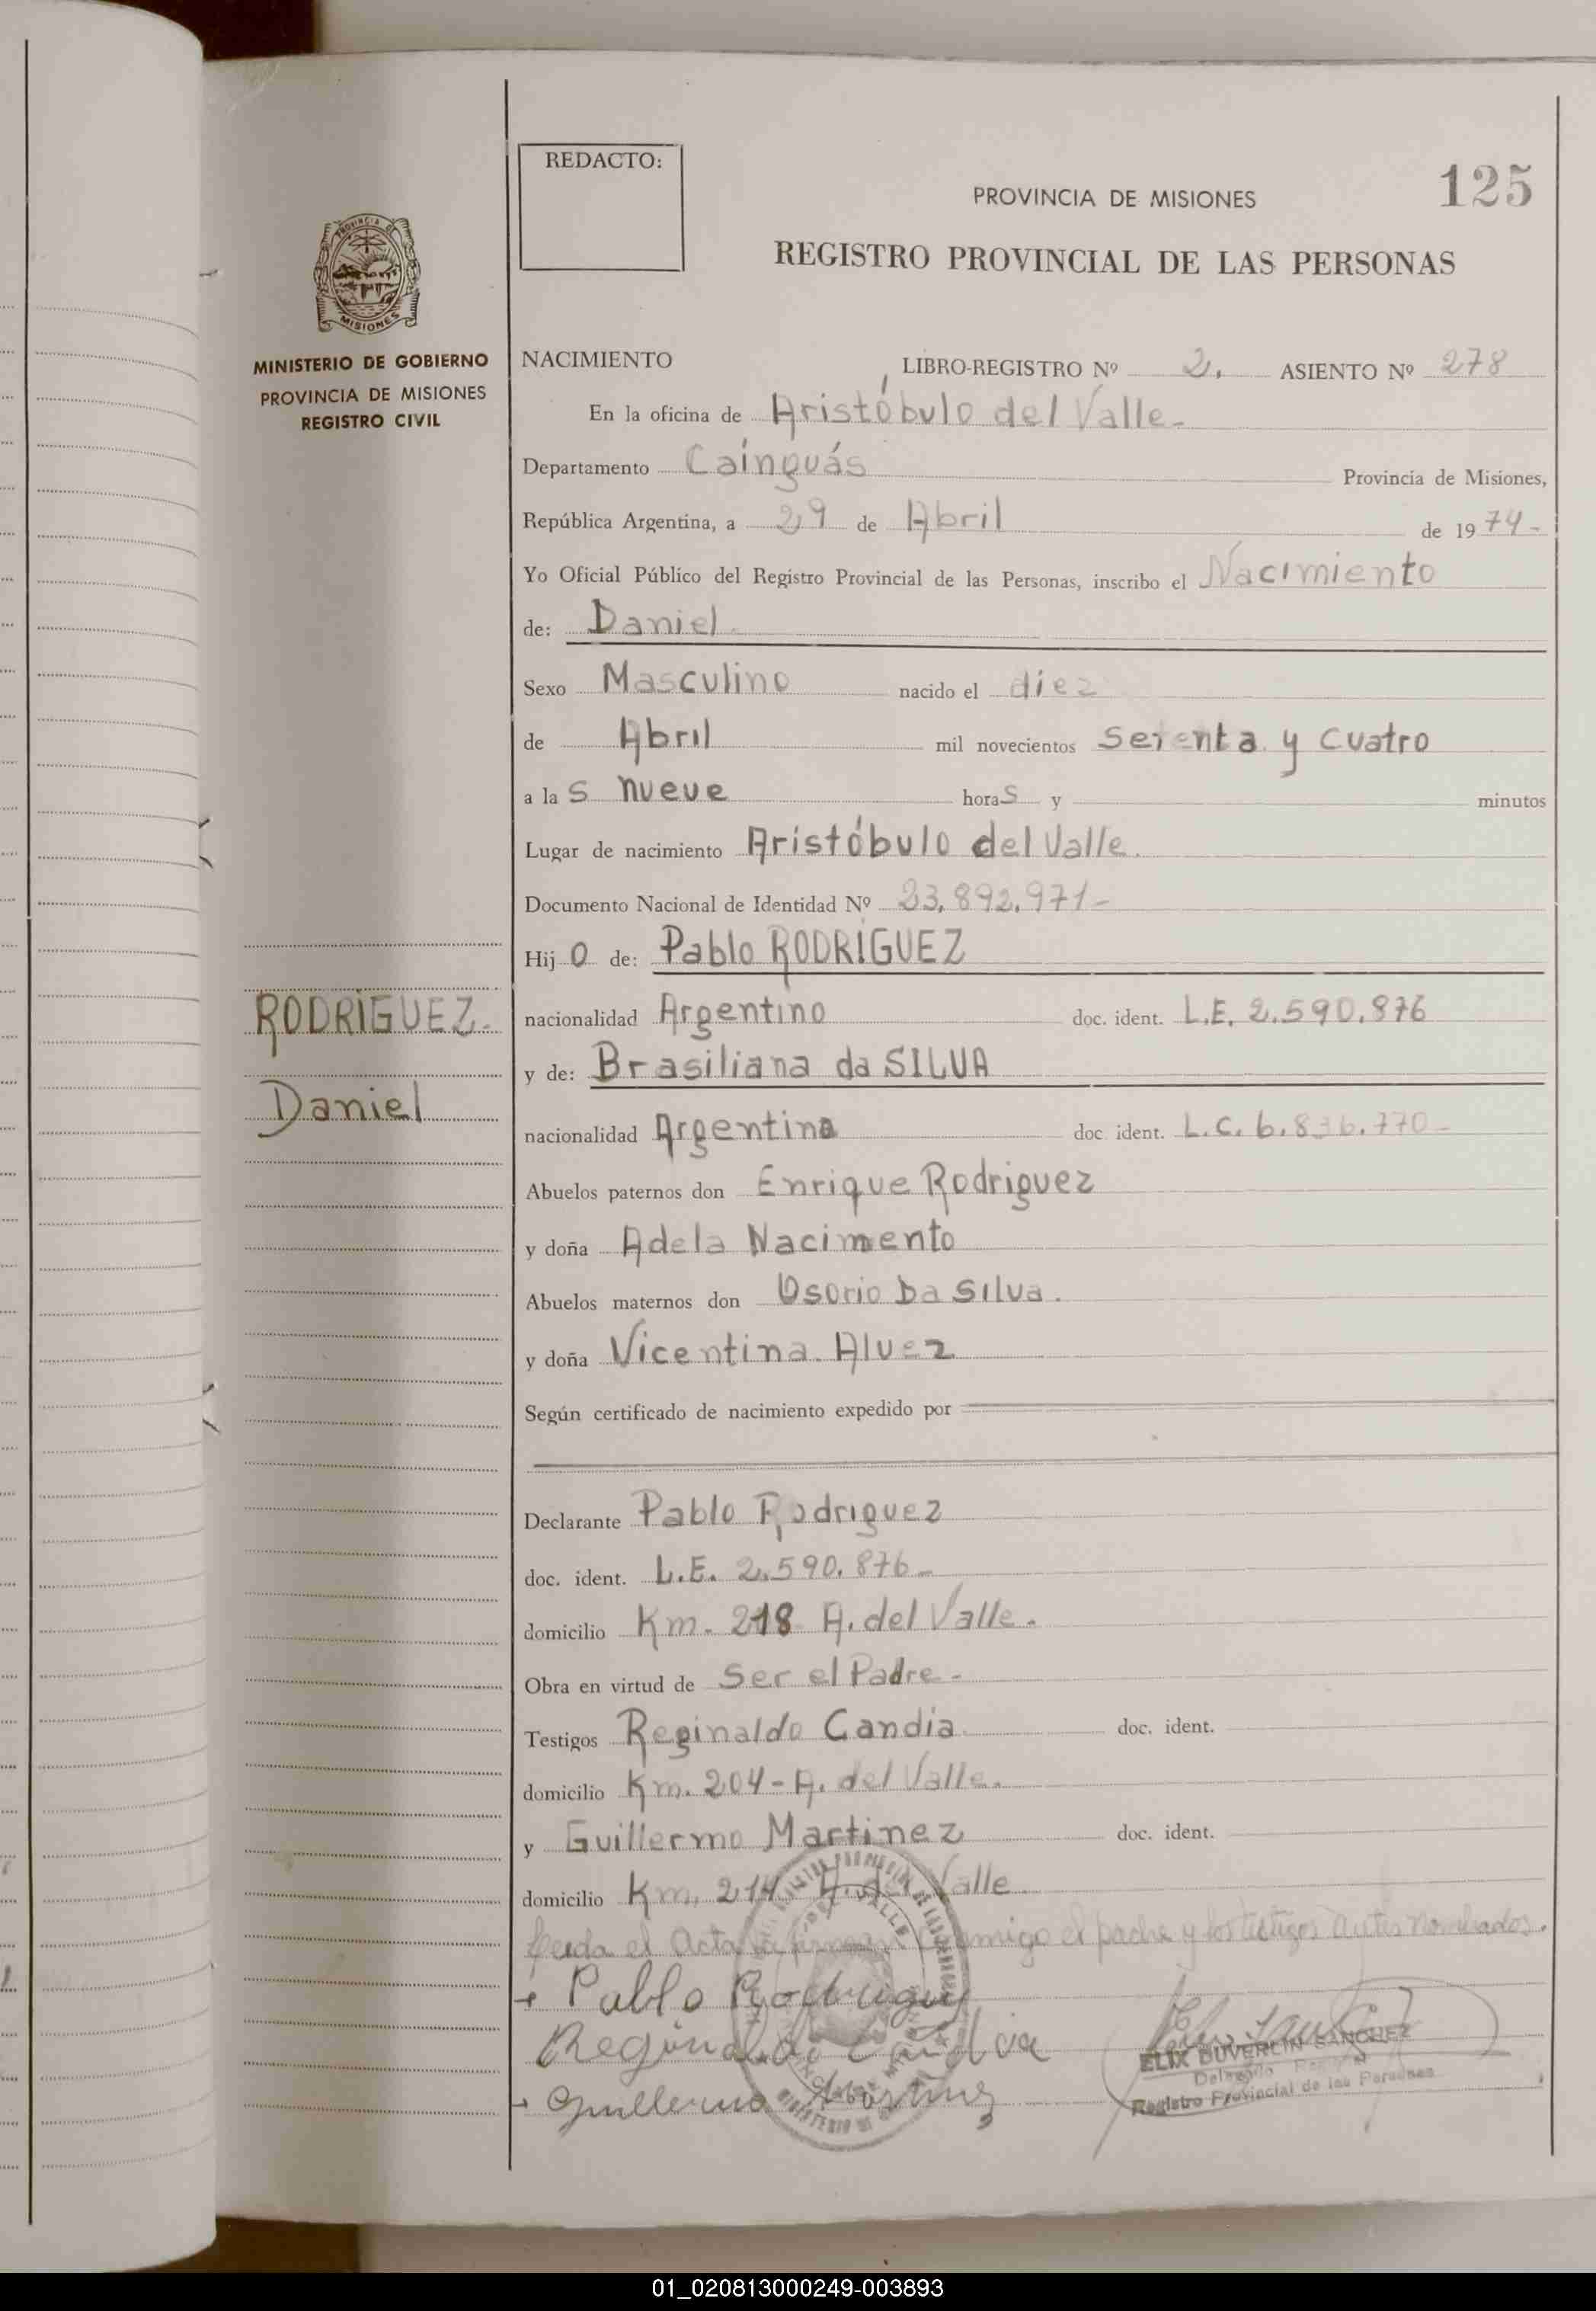 REDACTO:
125
PROVINCIA DE MISIONES
REGISTRO PROVINCIAL DE LAS PERSONAS
PROVINCIA DE
MISIONES
MINISTERIO DE GOBIERNO
PROVINCIA DE MISIONES
REGISTRO CIVIL
NACIMIENTO LIBRO-REGISTRO Nº 2. ASIENTO Nº 278
En la oficina de Aristóbulo del Valle-
Departamento Caínguás Provincia de Misiones,
República Argentina, a 29 de Abril de 1974-
Yo Oficial Público del Registro Provincial de las Personas, inscribo el Nacimiento
de: Daniel.
Sexo Masculino nacido el diez
de Abril mil novecientos Setenta y cuatro
a las nueve horas y minutos
Lugar de nacimiento Aristóbulo del Valle.
Documento Nacional de Identidad Nº 23.892.971-
Hijo de: Pablo RODRÍGUEZ
RODRÍGUEZ.
nacionalidad Argentino doc. ident. L.E. 2.590.876
y de: Brasiliana da SILVA
Daniel
nacionalidad Argentina doc. ident. L.C. 6.836.770-
Abuelos paternos don Enrique Rodriguez
y doña Adela Nacimento
Abuelos maternos don Osorio Da Silva.
y doña Vicentina Alvez
Según certificado de nacimiento expedido por
Declarante Pablo Rodriguez
doc. ident. L.E. 2.590.876-
domicilio Km. 218 A. del Valle.
Obra en virtud de Ser el Padre-
Testigos Reginaldo Candia doc. ident.
domicilio Km. 204-A. del Valle.
y Guillermo Martinez doc. ident.
domicilio Km. 214 A. del Valle
Leida el Acta la firman conmigo el padre y los testigos antes nombrados.
Pablo Rodriguez
Reginaldo Candia
Guillermo Martinez
ELIX DUVERLIN SANCHEZ
Delegado
Registro Provincial de las Personas
01_020813000249-003893